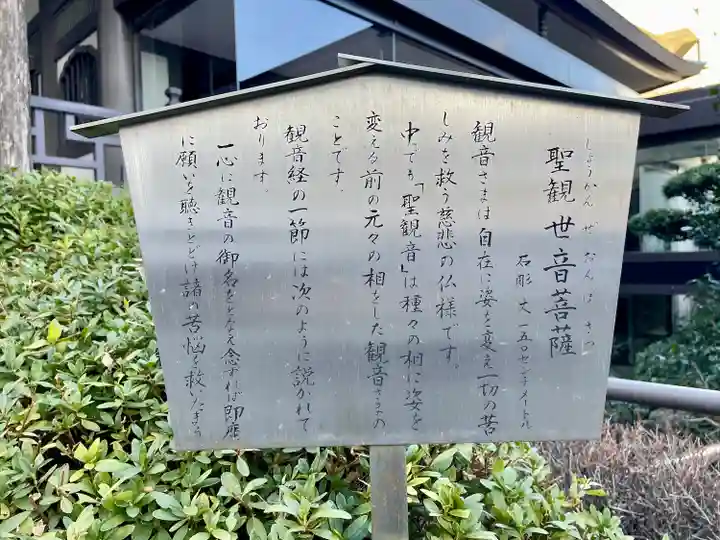 しょうかん ぜ おん ぼ さつ
聖観世音菩薩
石彫 丈一五〇センチメートル
観音さまは自在に姿を変え一切の苦
しみを救う慈悲の仏様です。
中でも「聖観音」は種々の相に姿を
変える前の元々の相をした観音さまの
ことです。
観音経の一節には次のように説かれて
おります。
一心に観音の御名をとなえ念ずれば即座
に願いを聴きとどけ諸の苦悩を救いたまう